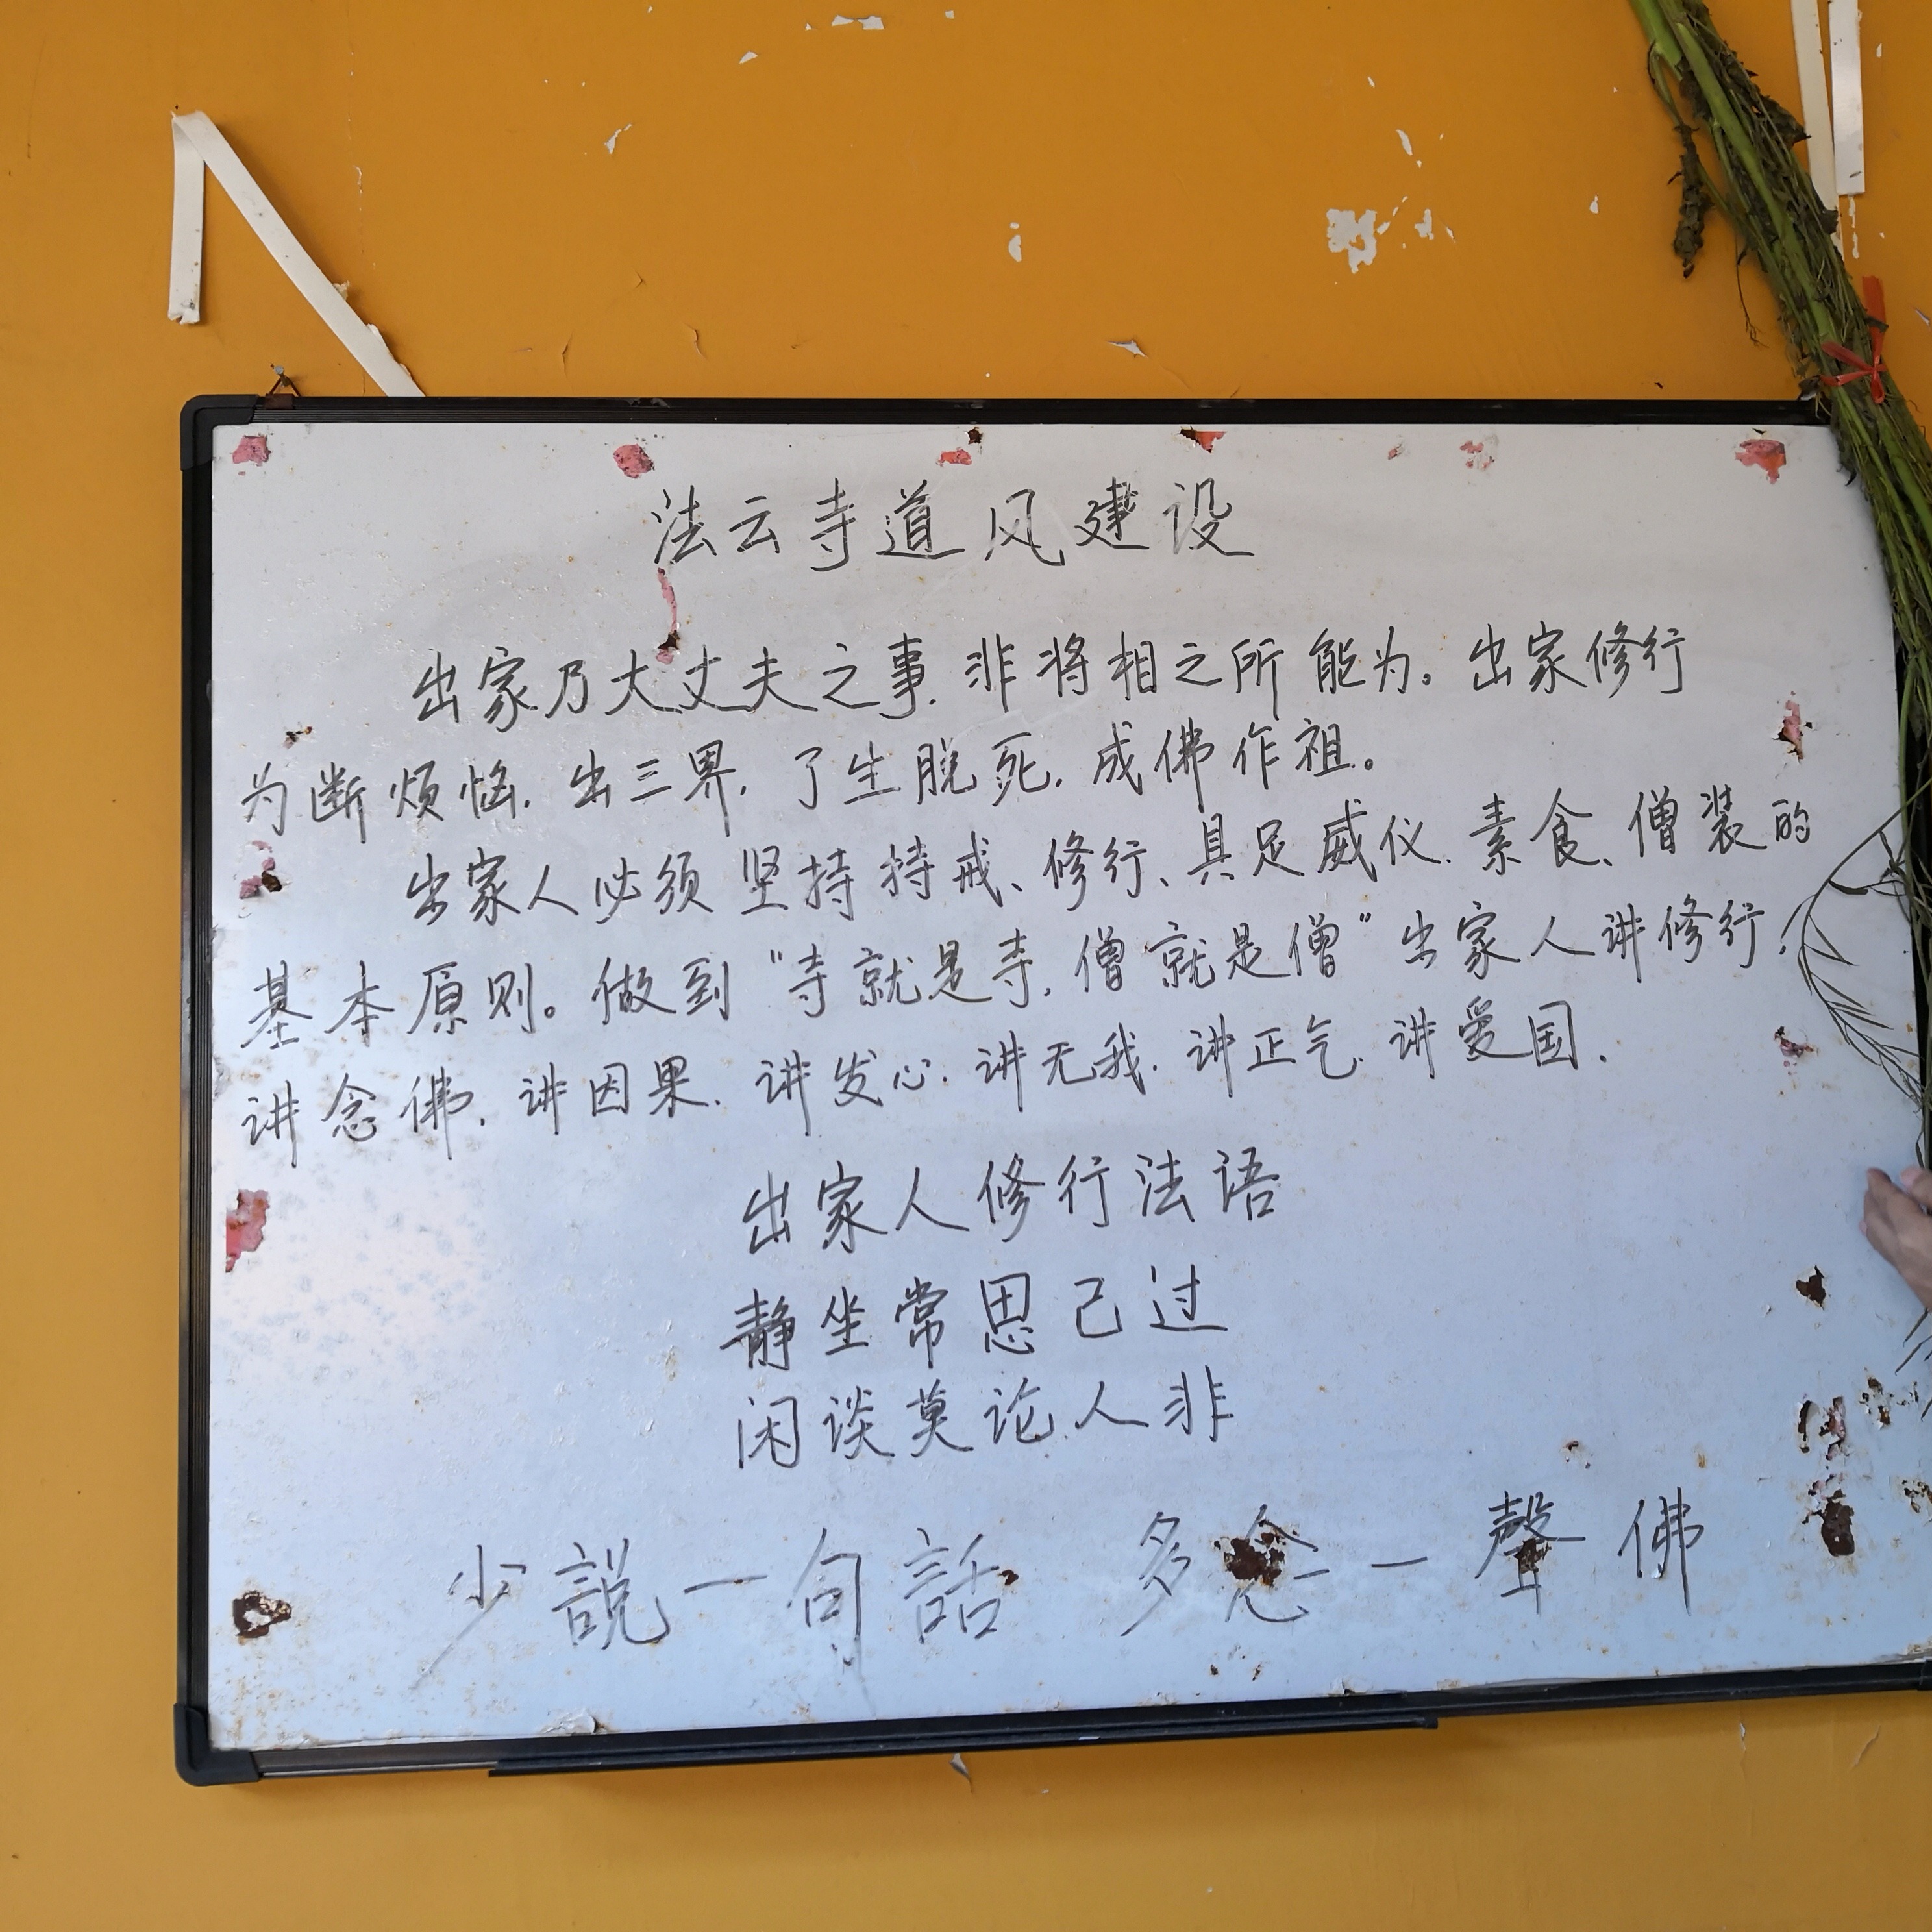 法云寺道风建设
出家乃大丈夫之事.非将相之所能为。出家修行
为断烦恼.出三界.了生脱死.成佛作祖。
出家人必须坚持持戒、修行、具足威仪.素食、僧装的
基本原则。做到“寺就是寺.僧就是僧”出家人讲修行.
讲念佛.讲因果.讲发心.讲无我.讲正气.讲爱国.
出家人修行法语
静坐常思己过
闲谈莫论人非
少説一句話 多念一聲佛